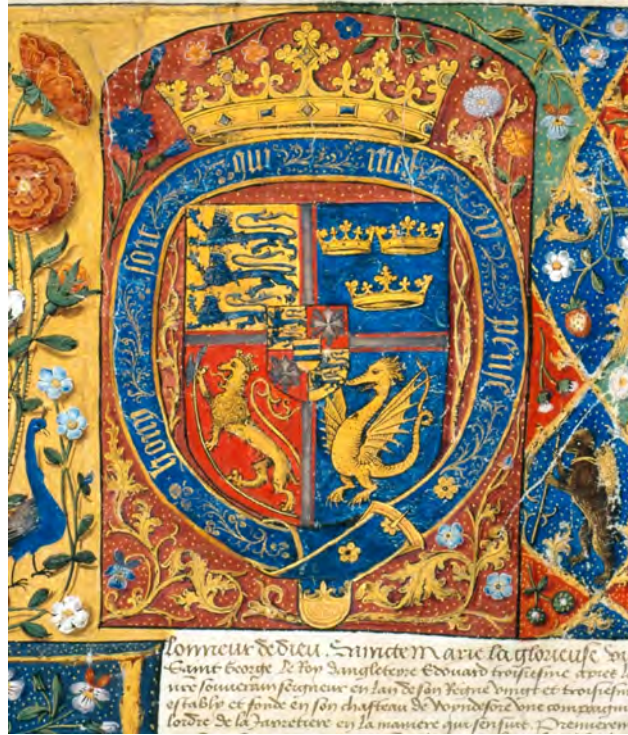 hony soit qui mal y pense
lonneur de dieu . Saincte Marie la glorieuse vi
Saint George . Le Roy dangleterre Edouard troisiesme apres
nre souverain seigneur en lan de son Regne vingt et troisiesm
establÿ et fonde en son chasteau de une compaigni
lordre de la Jarretiere en la maniere qui sensuit . Premierem